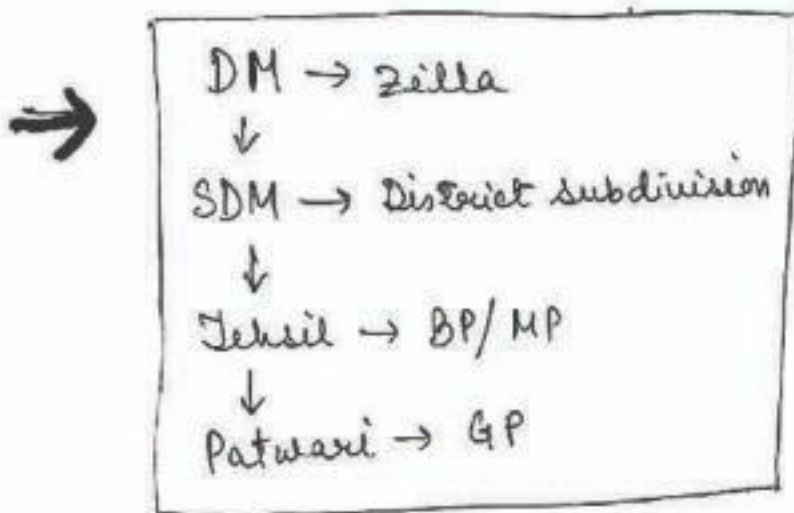 DM → Zilla
↓
SDM → District subdivision
↓
Tehsil → BP/MP
↓
Patwari → GP